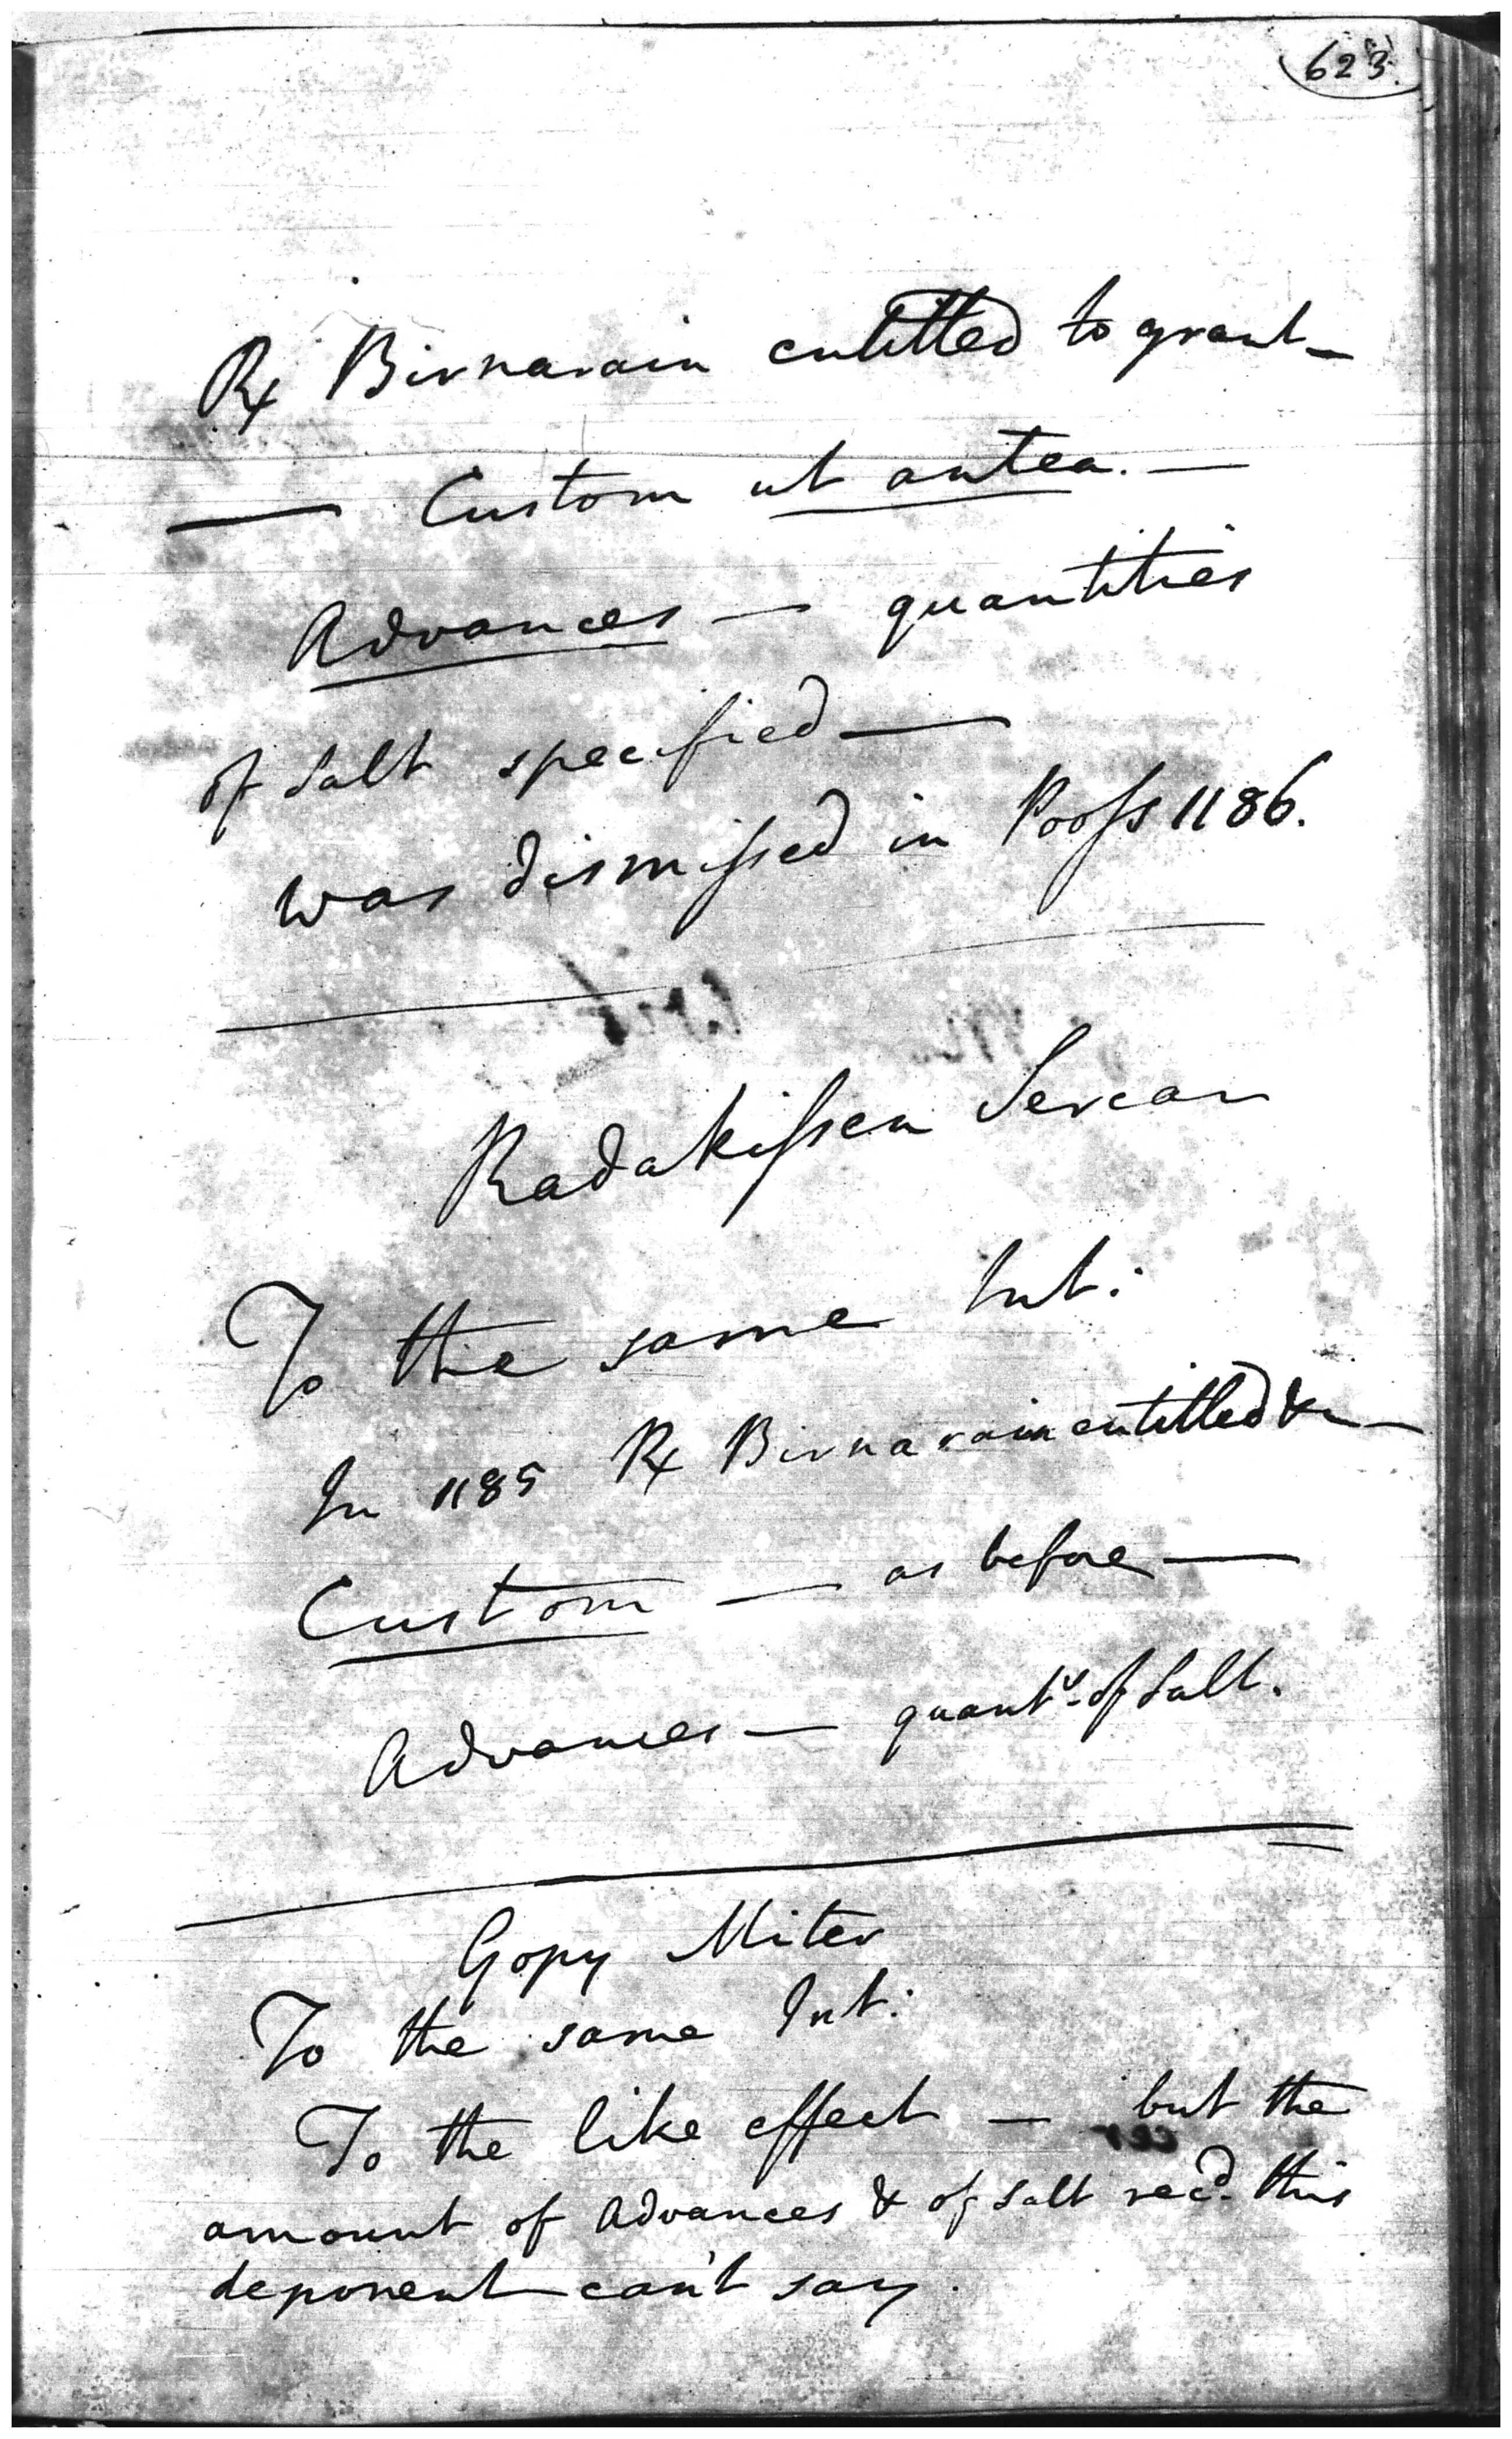 623.
Rx Birnarain entitled to grant —
— Custom ut antea. —
Advances — quantities
of Salt specified —
was dismissed in Pooss 1186.
Radakissen Sercar
To the same Int:
In 1185 Rx Birnarain entitled &c —
Custom — as before —
Advances — quant^s. of Salt.
Gopy Miter
To the same Int:
To the like effect — but the
amount of Advances & of Salt rec^d. this
deponent can't say.